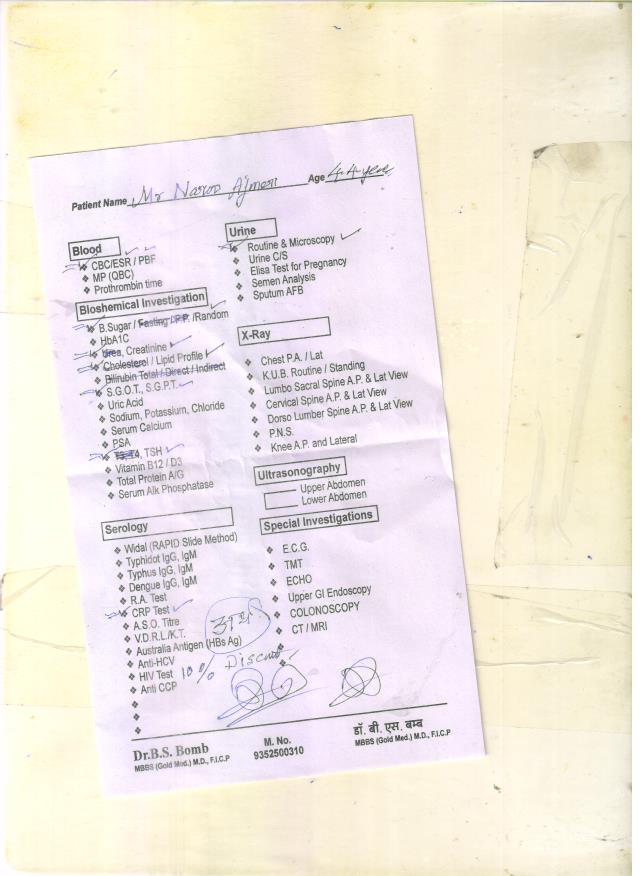 Patient Name Mr Naroo Ajmeri Age 44 year
Blood
CBC/ESR / PBF
MP (QBC)
Prothrombin time
Bioshemical Investigation
B.Sugar / Fasting / P.P. /Random
HbA1C
Urea, Creatinine
Cholesterol / Lipid Profile
Bilirubin Total / Direct / Indirect
S.G.O.T., S.G.P.T.
Uric Acid
Sodium, Potassium, Chloride
Serum Calcium
PSA
T3, T4, TSH
Vitamin B12 / D3
Total Protein A/G
Serum Alk Phosphatase
Serology
Widal (RAPID Slide Method)
Typhidot IgG, IgM
Typhus IgG, IgM
Dengue IgG, IgM
R.A. Test
CRP Test
A.S.O. Titre
V.D.R.L/K.T.
Australia Antigen (HBs Ag)
Anti-HCV
HIV Test
Anti CCP
Urine
Routine & Microscopy
Urine C/S
Elisa Test for Pregnancy
Semen Analysis
Sputum AFB
X-Ray
Chest P.A. / Lat
K.U.B. Routine / Standing
Lumbo Sacral Spine A.P. & Lat View
Cervical Spine A.P. & Lat View
Dorso Lumber Spine A.P. & Lat View
P.N.S.
Knee A.P. and Lateral
Ultrasonography
Upper Abdomen
Lower Abdomen
Special Investigations
E.C.G.
TMT
ECHO
Upper GI Endoscopy
COLONOSCOPY
CT / MRI
10%
Dr.B.S. Bomb
MBBS (Gold Med.) M.D., F.I.C.P
M. No.
9352500310
डॉ. बी. एस. बम्ब
MBBS (Gold Med.) M.D., F.I.C.P